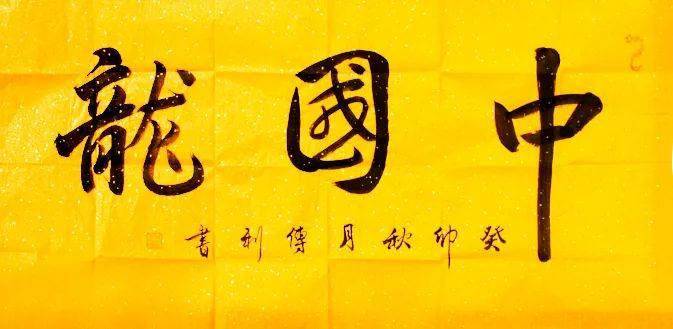 中國龍
癸卯秋月傳利書